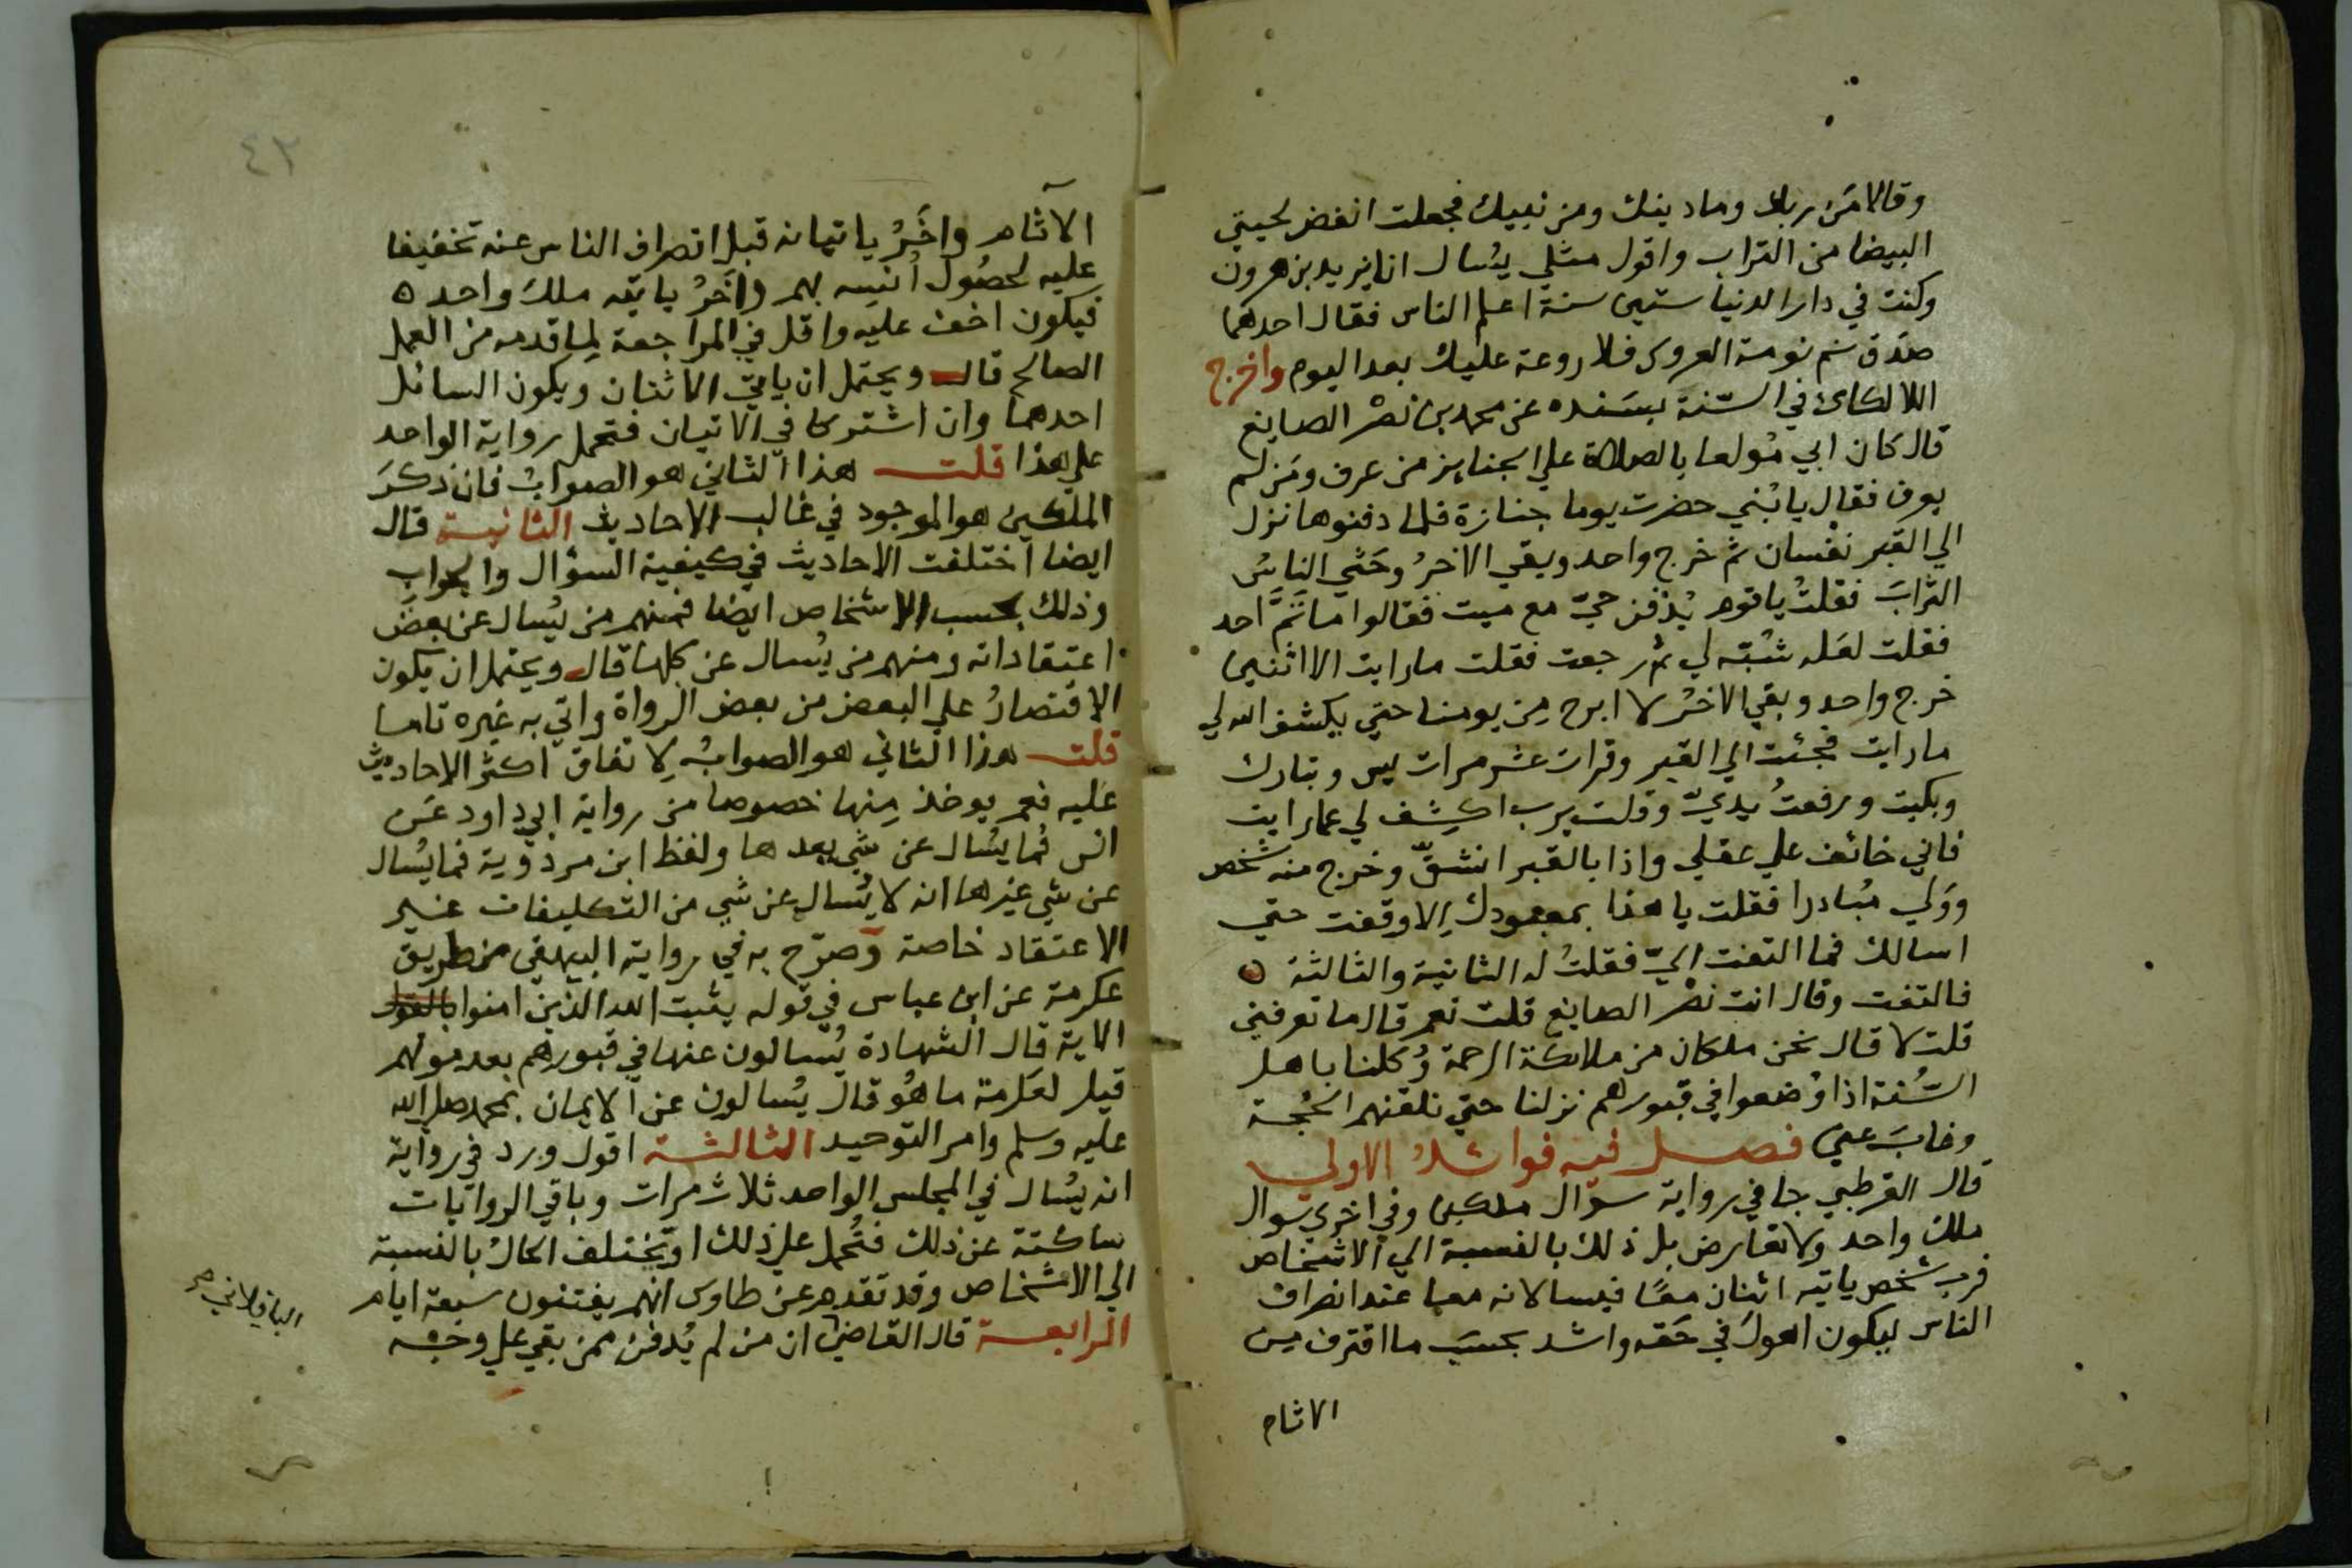 وقالا مَن ربك وما دينك ومن نبيك فجعلت انفض لحيتي
البيضا من التراب واقول مثلي يُسال انا يزيد بن هرون
وكنت في دار الدنيا ستين سنة اعلم الناس فقال احدهما
صدق نم نومة العروس فلا روعة عليك بعد اليوم واخرج
اللالكائ في السّنة بسَنده عن محمد بن نصْر الصايغ
قال كان ابي مُولعا بالصلاة علي الجنايز من عرف ومَن لم
يعرف فقال يا بُني حضرت يوما جنازة فلما دفنوها نزل
الي القبر نفسان ثم خرج واحد وبقي الاخرُ وحَثي الناسُ
الترابَ فقلتُ يا قوم يُدفن حيّ مع ميت فقالوا ما ثَمَّ احد
فقلت لعَله شبّه لي ثم رجعت فقلت ما رايت الا اثنين
خرج واحد وبقي الاخرُ لا ابرح مِن يومنا حتي يكشف الله لي
ما رايت فجئت الي القبر وقرات عشر مرات يس وتبارك
وبكيت ورفعتُ يديّ وقلت يرب اكشِف لي عما رايت
فاني خائف علي عقلي واذا بالقبر انشقّ وخرج منه شخص
ووَلي مُبادرا فقلت يا هذا بمعبودك اِلا وقفت حتي
اسالك فما التفت اليّ فقلتُ له الثانية والثالثة ه
فالتفت وقال انت نصْر الصايغ قلت نعم قال ما تعرفني
قلت لا قال نحن ملكان من ملائكة الرحمة وُكلنا باهل
السُّنة اذا وُضعوا في قبورهم نزلنا حتي نلقنهم الحُجة
وغابَ عني فصل فيه فوائدُ الاولي
قال القرطبي جا في رواية سوال ملكين وفي اخري سوال
ملك واحد ولا تعارض بل ذلك بالنسبة الي الاشخاص
فرب شخص ياتيه اثنان معًا فيسالانه معا عند انصراف
الناس ليكون اهولَ في حَقه واشد بحسَب ما اقترف مِن
الاثام
٤٢
الآثام واخَرُ ياتيانه قبل انصراف الناس عنه تخفيفا
عليه لحصُول اُنسِه بهم واخَرُ ياتيه ملك واحد ه
فيكون اخف عليه واقل في المراجعة لِما قدمه من العمل
الصالح قال ويحتمل ان ياتي الاثنان ويكون السائل
احدهما وان اشتركا في الاتيان فتحمل رواية الواحد
علي هذا قلت هذا الثاني هو الصوابُ فان ذكرَ
الملكين هو الموجود في غالب الاحاديث الثانية قال
ايضا اختلفت الاحاديث في كيفية السؤال والجواب
وذلك بحسب الاشخاص ايضا فمنهم من يُسال عن بعض
اعتقاداته ومنهم من يُسال عن كلها قال ويحتمل ان يكون
الاقتصارُ علي البعض من بعض الرواة واتي به غيره تاما
قلت هذا الثاني هو الصوابُ لِاتفاق اكثر الاحاديث
عليه نعم يوخذ مِنها خصوصا من رواية ابي داود عَن
انس فُما يسُال عن شي بعدها ولفظ ابن مردوية فما يسُال
عن شي غيرها انه لا يُسال عن شي من التكليفات غير
الاعتقاد خاصة وصرّح به في رواية البيهقي من طريق
عكرمة عن ابن عباس في قوله يثبت الله الذين امنوا بالقول
الاية قال الشهادة يُسالون عنها في قبورهم بعد موتهم
قيل لعكرمة ما هُو قال يُسالون عن الايمان بمحمد صلي الله
عليه وسلم وامر التوحيد الثالثة اقول ورد في رواية
انه يسُال في المجلس الواحد ثلاث مرات وباقي الروايات
ساكتة عن ذلك فتُحمل علي ذلك او يختلف الحالُ بالنسبة
الي الاشخاص وقد تقدم عن طاوس انهم يفتنون سبعة ايام
الرابعة قال القاضي ان من لم يُدفن ممن بقي علي وجه
الباقلاني صح